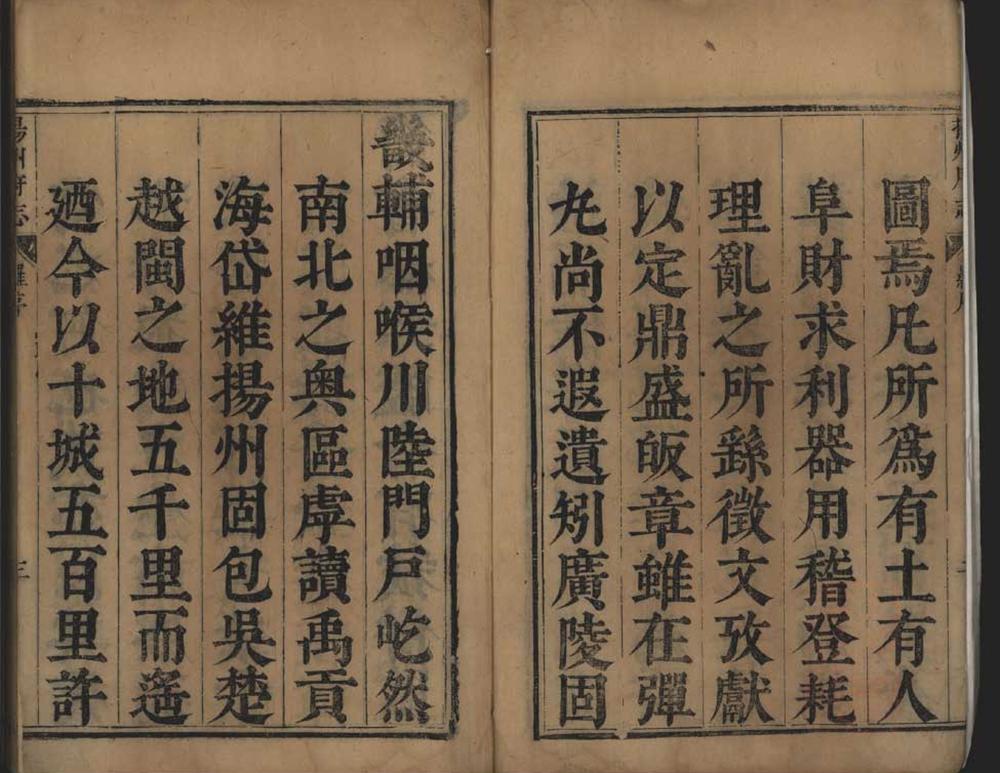 圖焉凡所爲有土有人
阜財求利器用稽登耗
理亂之所繇徵文攷獻
以定鼎盛皈章雖在彈
丸尚不遐遺矧廣陵固
畿輔咽喉川陸門戶屹然
南北之奥區虖讀禹貢
海岱維揚州固包吳楚
越閩之地五千里而遙
廼今以十城五百里許